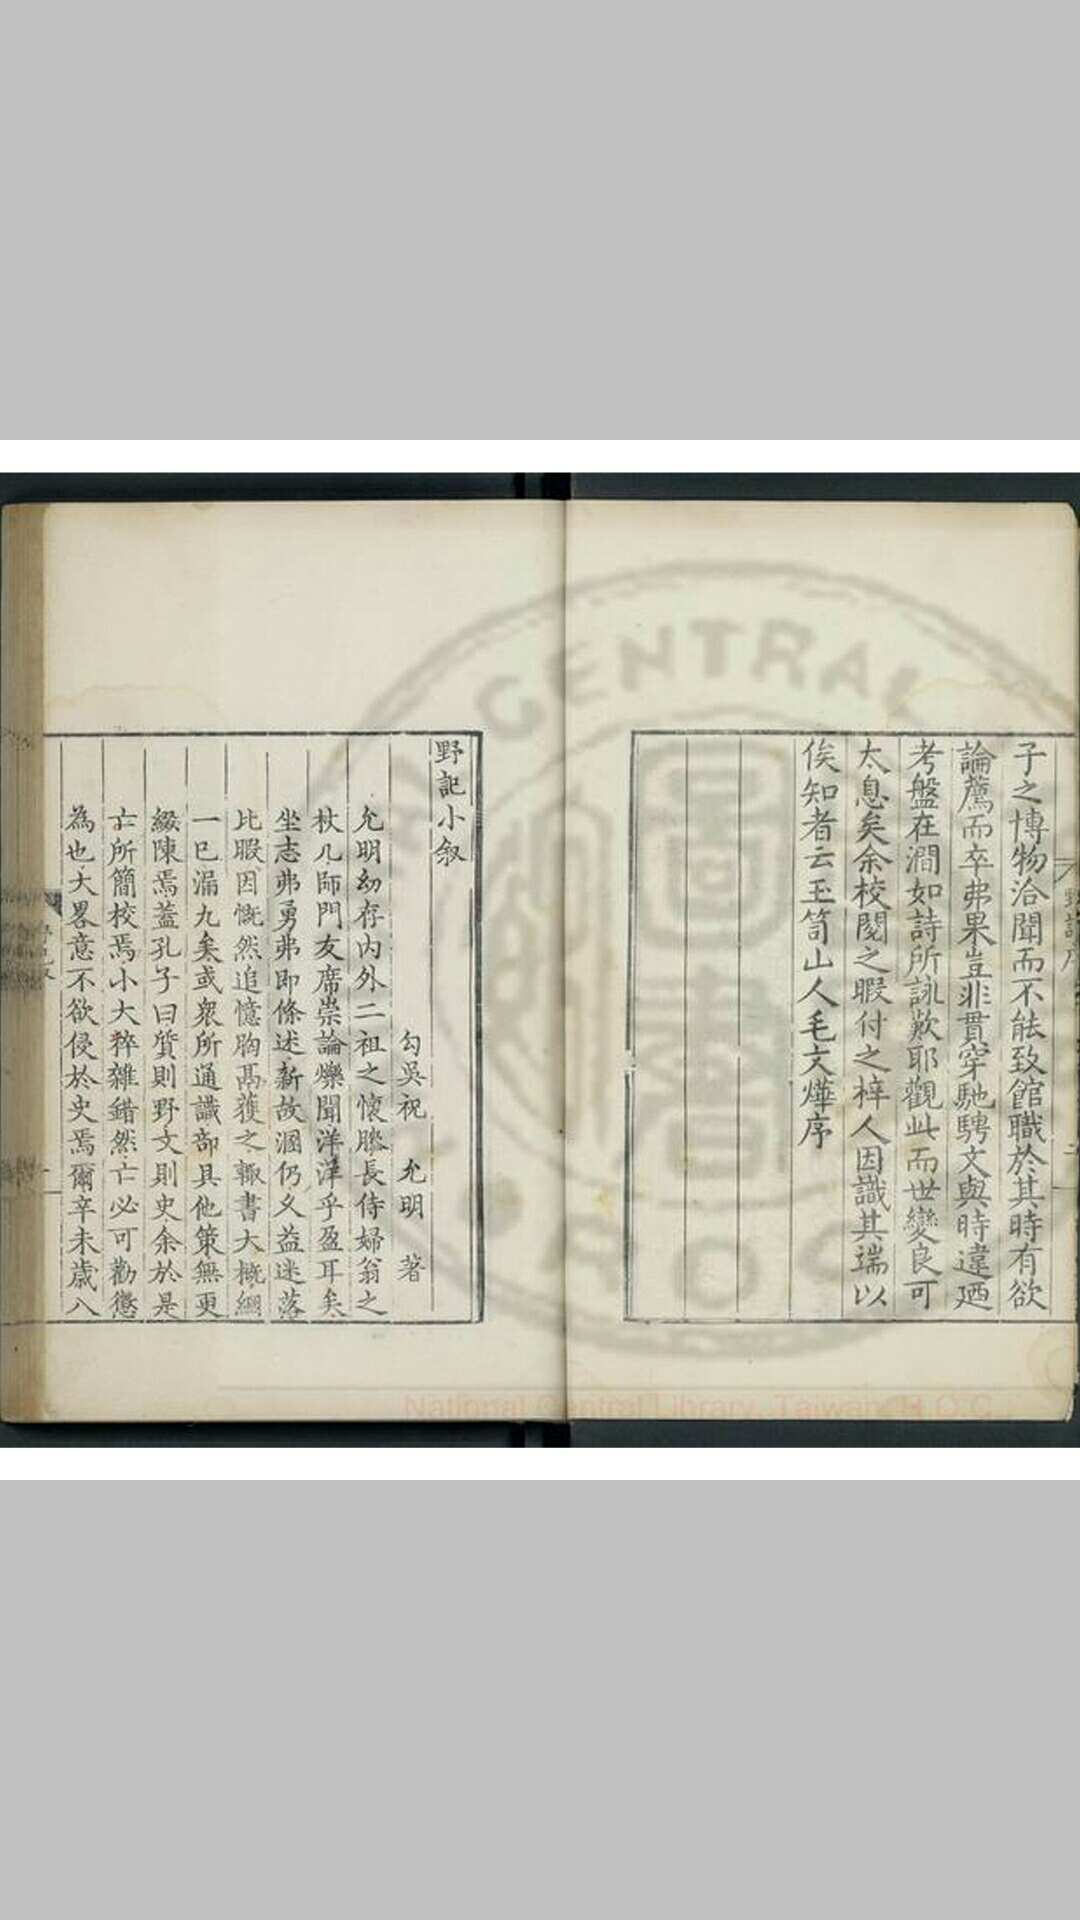 子之博物洽聞而不能致館職於其時有欲
論薦而卒弗果豈非貫穿馳騁文與時違廼
考盤在澗如詩所詠歟耶觀此而世變良可
太息矣余校閱之暇付之梓人因識其端以
俟知者云玉笥山人毛文燁序
野記小敘
勾吳祝允明著
允明幼存內外二祖之懷膝長侍婦翁之
杖几師門友席崇論爍聞洋洋乎盈耳矣
坐志弗勇弗即條述新故溷仍久益迷落
比暇因慨然追憶胸鬲獲之輒書大概網
一已漏九矣或衆所通識部具他策無更
綴陳焉蓋孔子曰質則野文則史余於是
亡所簡校焉小大粹雜錯然亡必可勸懲
為也大畧意不欲侵於史焉爾辛未歲八
CENTRAL
National Central Library, Taiwan, R.O.C.